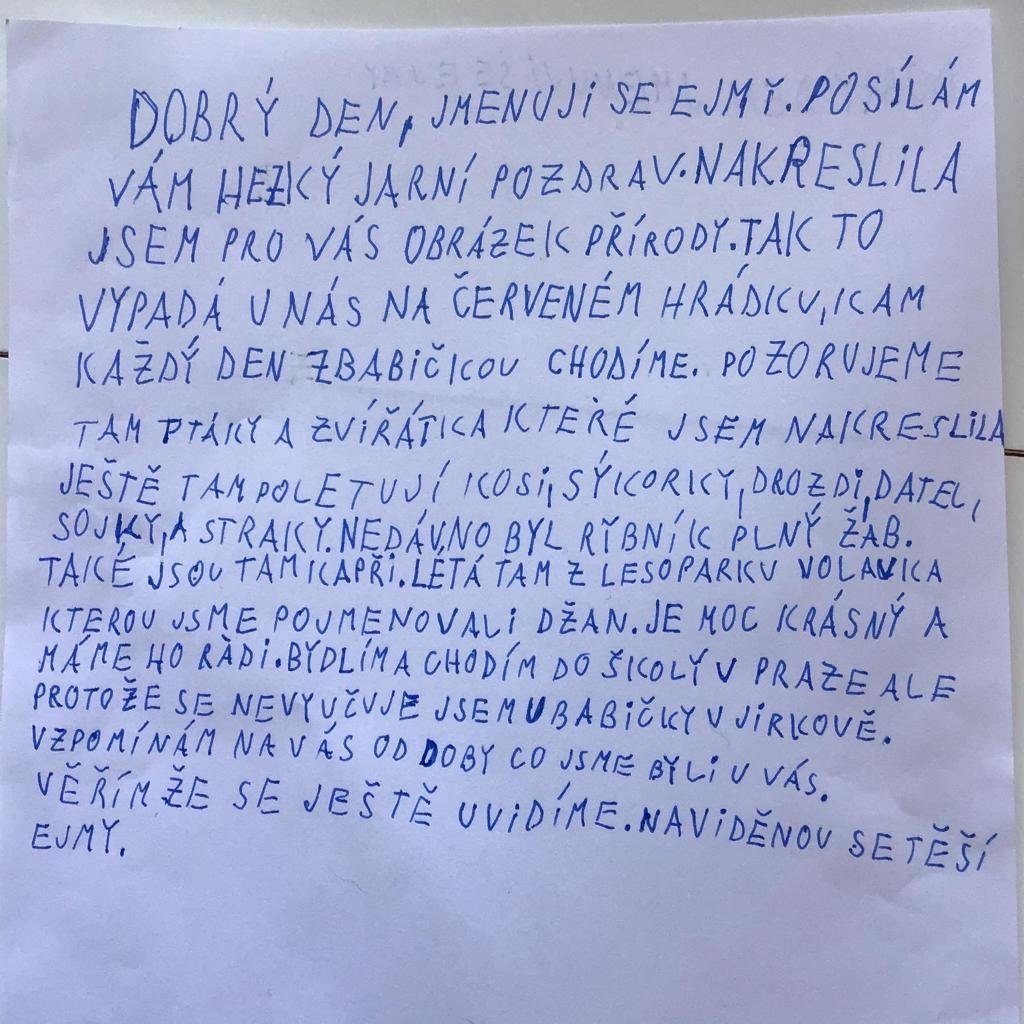 DOBRÝ DEN, JMENUJI SE EJMY. POSÍLÁM
VÁM HEZKÝ JARNÍ POZDRAV. NAKRESLILA
JSEM PRO VÁS OBRÁZEK PŘÍRODY. TAK TO
VYPADÁ U NÁS NA ČERVENÉM HRÁDKU, KAM
KAŽDÝ DEN ZBABIČKOU CHODÍME. POZORUJEME
TAM PTÁKY A ZVÍŘÁTKA KTERÉ JSEM NAKRESLILA
JEŠTĚ TAM POLETUJÍ KOSI, SÝKORKY, DROZDI, DATEL,
SOJKY, A STRAKY. NEDÁVNO BYL RYBNÍK PLNÝ ŽAB.
TAKÉ JSOU TAM KAPŘI. LÉTÁ TAM Z LESOPARKU VOLAVKA
KTEROU JSME POJMENOVALI DŽAN. JE MOC KRÁSNÝ A
MÁME HO RÁDI. BYDLÍM A CHODÍM DO ŠKOLY V PRAZE ALE
PROTOŽE SE NEVYUČUJE JSEM U BABIČKY V JIRKOVĚ.
VZPOMÍNÁM NA VÁS OD DOBY CO JSME BYLI U VÁS.
VĚŘÍM ŽE SE JEŠTĚ UVIDÍME. NAVIDĚNOU SE TĚŠÍ
EJMY.